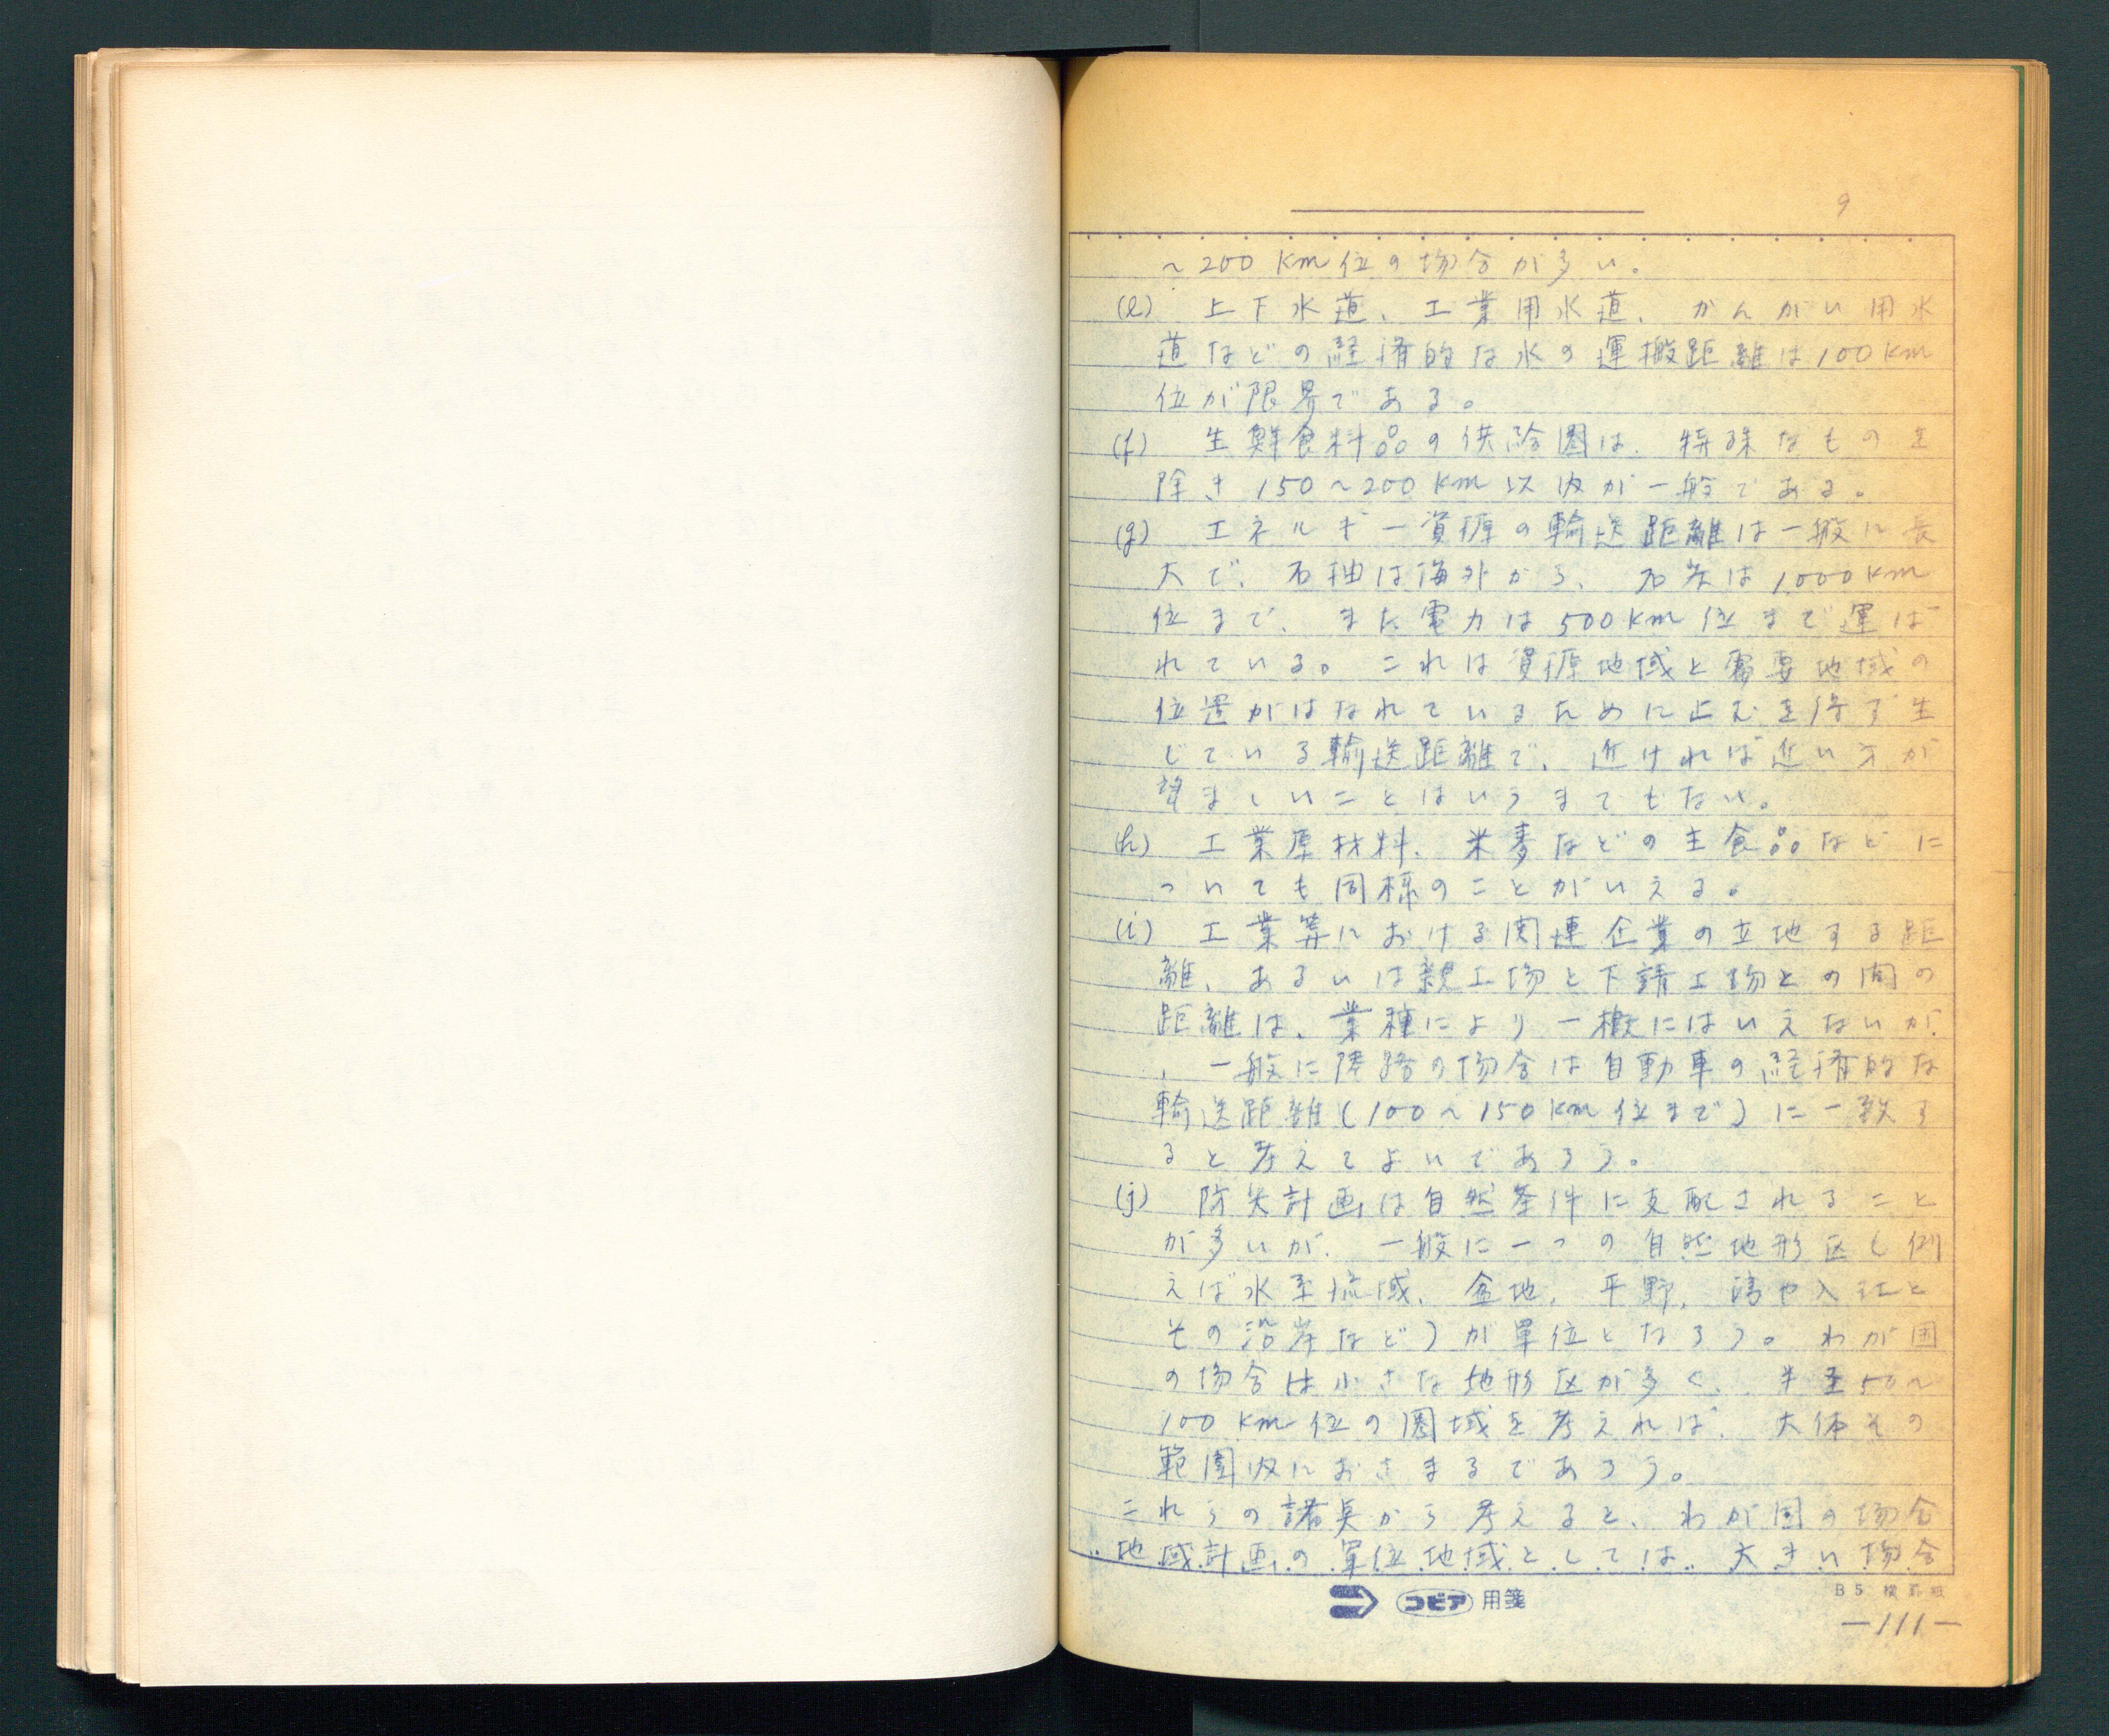 9
~200km位の場合が多い。
(e) 上下水道、工業用水道、かんがい用水
道などの経済的な水の運搬距離は100km
位が限界である。
(f) 生鮮食料品の供給圏は、特殊なものを
除き150~200km以内が一般である。
(g) エネルギー資源の輸送距離は一般に長
大で、石油は海外から、石炭は1000km
位まで、また電力は500km位まで運ば
れている。これは資源地域と需要地域の
位置がはなれているために止むを得ず生
じている輸送距離で、近ければ近い方が
望ましいことはいうまでもない。
(h) 工業原材料、米麦などの主食品などに
ついても同様のことがいえる。
(i) 工業等における関連企業の立地する距
離、あるいは親工場と下請工場との間の
距離は、業種により一概にはいえないが
、一般に陸路の場合は自動車の経済的な
輸送距離(100~150km位まで)に一致す
ると考えてよいであろう。
(j) 防災計画は自然条件に支配されること
が多いが、一般に一つの自然地形区(例
えば水系流域、盆地、平野、湾や入江と
その沿岸など)が単位となろう。わが国
の場合は小さな地形区が多く、半径50~
100km位の圏域を考えれば、大体その
範囲内におさまるであろう。
これらの諸点から考えると、わが国の場合
地域計画の単位地域としては、大きい場合
コピア 用箋
B5 横罫紙
-111-